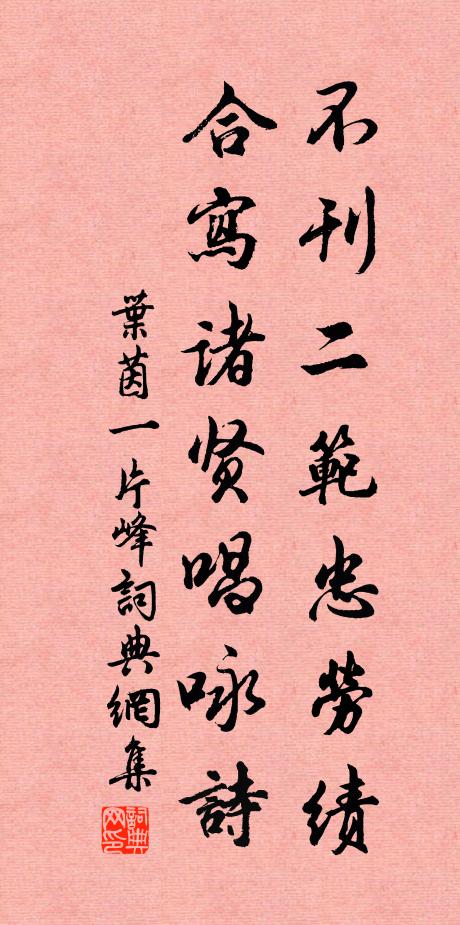 不刊二範忠勞绩
合寫诸贤唱咏詩
葉茵一片峰詞典網集
詞典網印